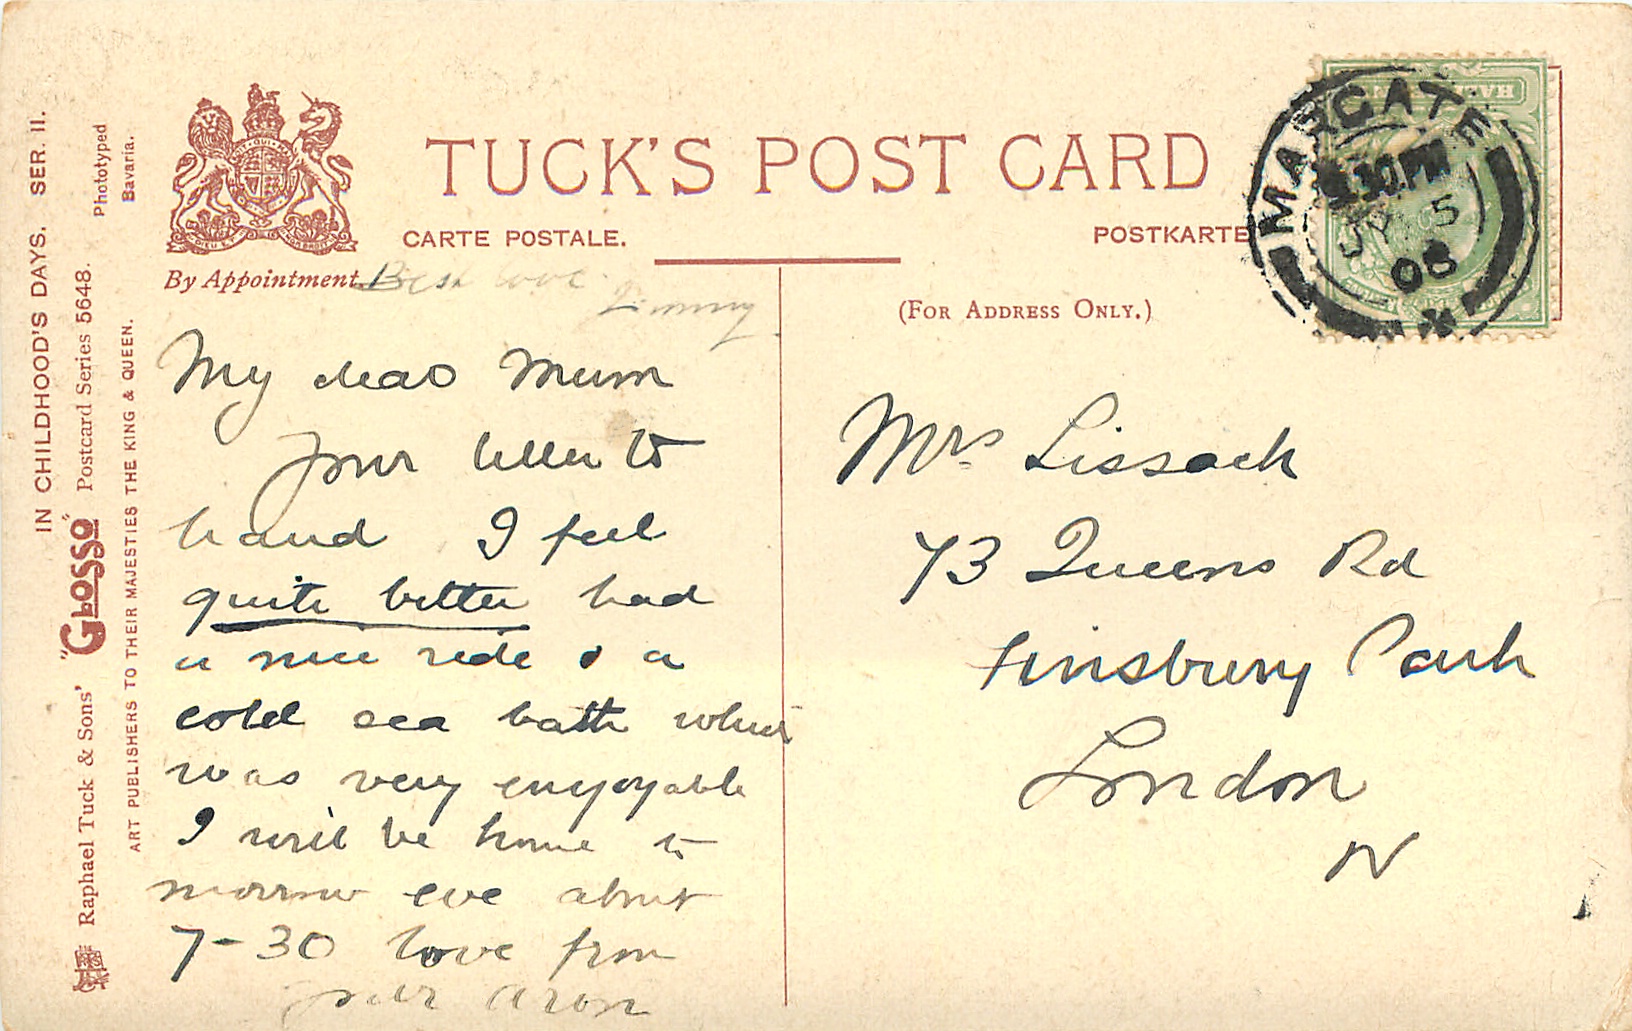 IN CHILDHOOD'S DAYS. SER. II.
"GLOSSO" Postcard Series 5648.
Phototyped
Bavaria.
Raphael Tuck & Sons'
ART PUBLISHERS TO THEIR MAJESTIES THE KING & QUEEN.
TUCK'S POST CARD
CARTE POSTALE.
POSTKARTE
By Appointment
(FOR ADDRESS ONLY.)
MARGATE
30 PM
5
Best love
My dear Mum
Your letter to
hand I feel
quite better had
a nice ride & a
cold sea bath which
was very enjoyable
I will be home to
morrow eve about
7-30 love from
your Aron
Mrs Lissack
73 Queens Rd
Finsbury Park
London
N